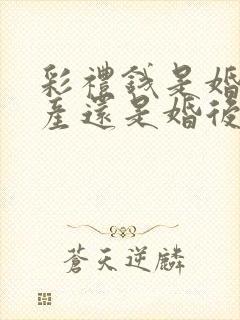 彩禮錢是婚
產還是婚後
蒼天逆麟